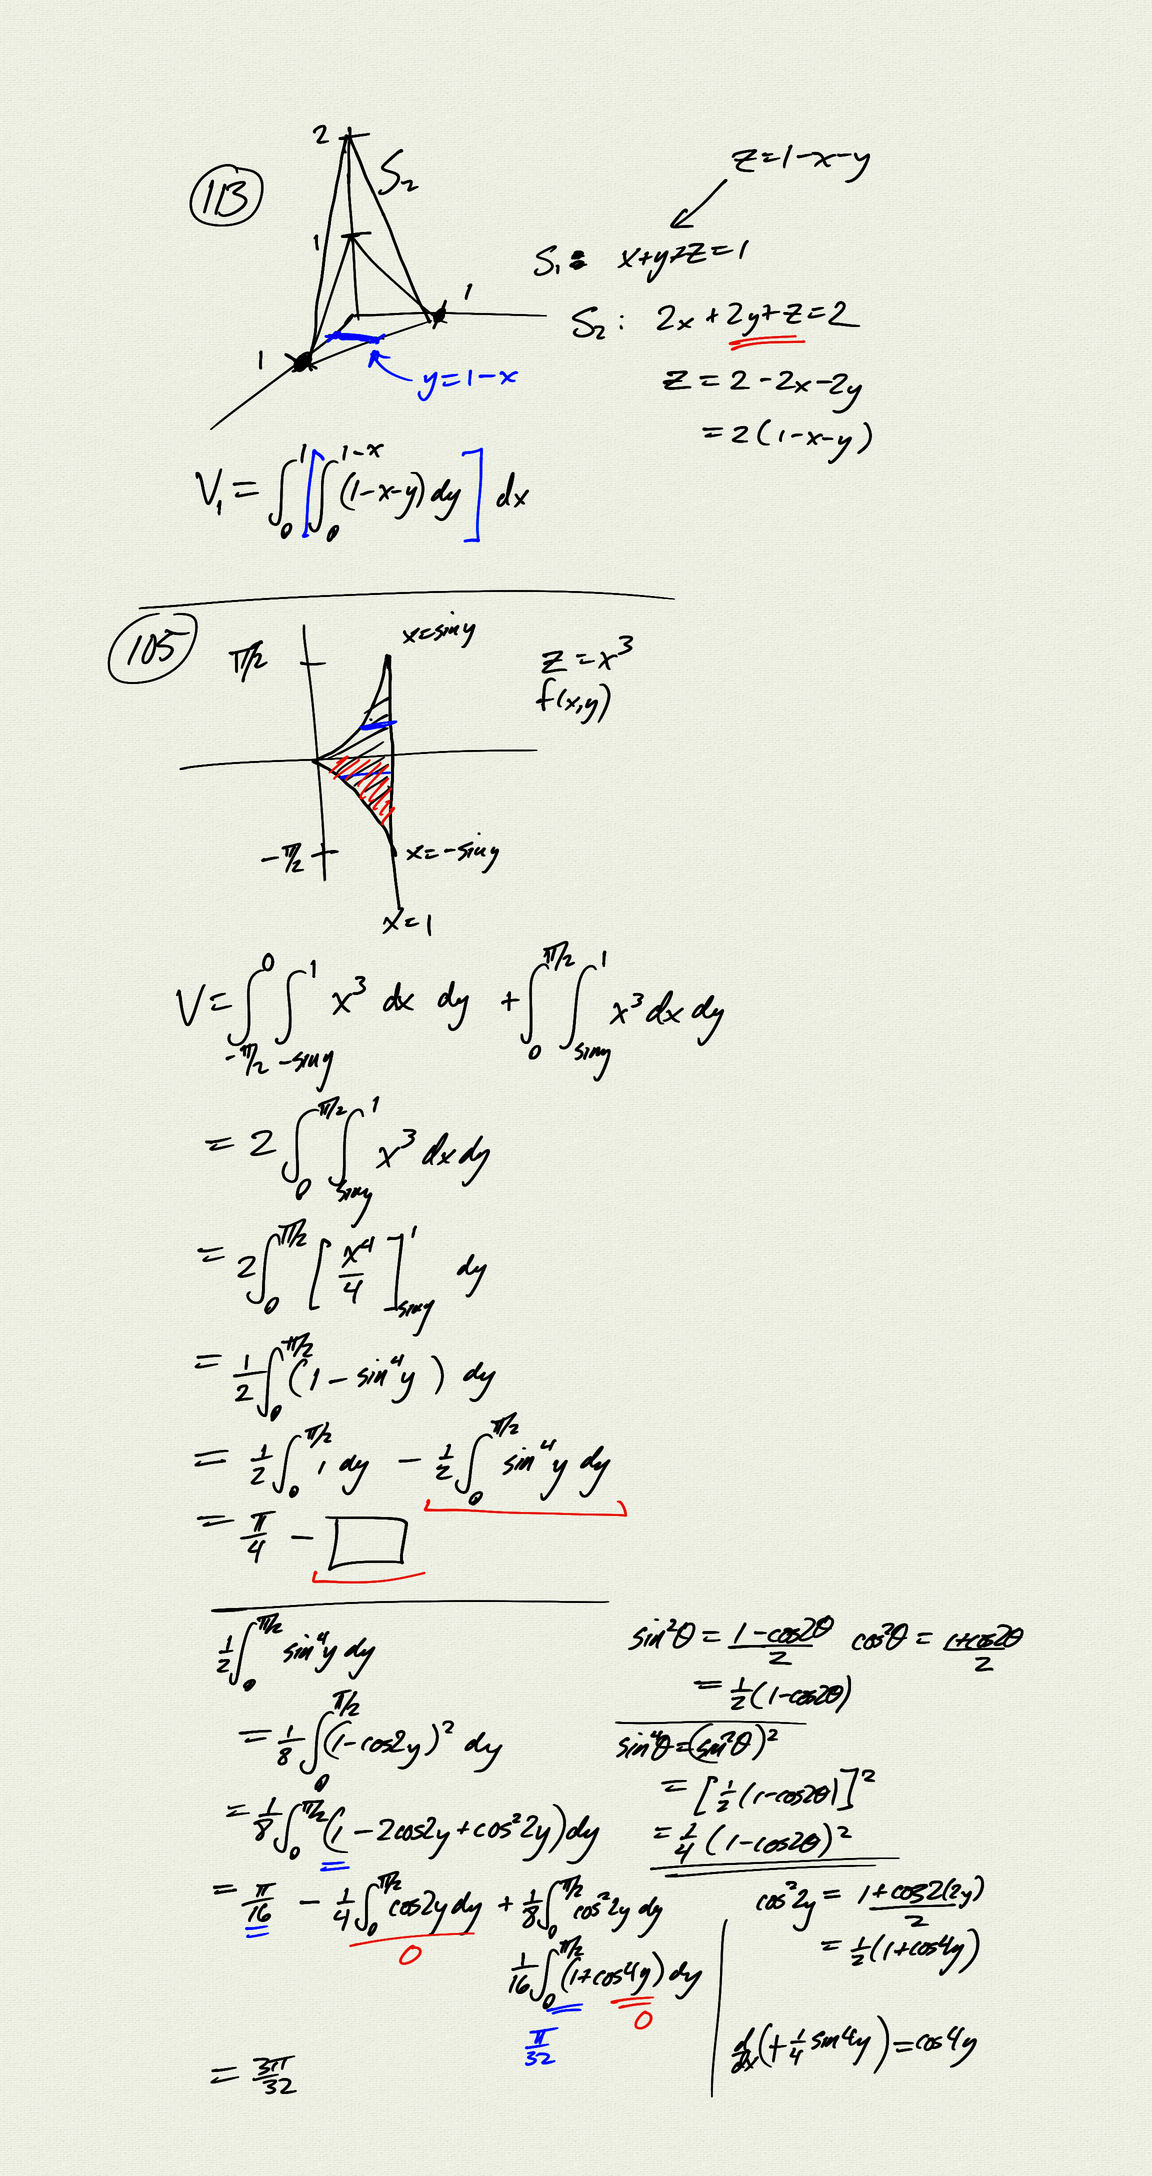 113
2
S₂
1
1
1
y=1-x
z=1-x-y
S₁: x+y+z=1
S₂: 2x+2y+z=2
z=2-2x-2y
=2(1-x-y)
V₁ = ∫₀¹ [∫₀^(1-x) (1-x-y)dy] dx
105
π/2
x=sin y
z=x³
f(x,y)
-π/2
x=-sin y
x=1
V= ∫_(-π/2)^0 ∫_(-sin y)^1 x³ dx dy + ∫_0^(π/2) ∫_(sin y)^1 x³ dx dy
= 2 ∫_0^(π/2) ∫_(sin y)^1 x³ dx dy
= 2 ∫_0^(π/2) [x⁴/4]_(sin y)^1 dy
= 1/2 ∫_0^(π/2) (1 - sin⁴y) dy
= 1/2 ∫_0^(π/2) 1 dy - 1/2 ∫_0^(π/2) sin⁴y dy
= π/4 - □
1/2 ∫_0^(π/2) sin⁴y dy
= 1/8 ∫_0^(π/2) (1-cos2y)² dy
= 1/8 ∫_0^(π/2) (1-2cos2y+cos²2y)dy
= π/16 - 1/4 ∫_0^(π/2) cos2y dy + 1/8 ∫_0^(π/2) cos²2y dy
0
1/16 ∫_0^(π/2) (1+cos4y) dy
0
π/32
= 3π/32
sin²θ = (1-cos2θ)/2 cos²θ = (1+cos2θ)/2
= 1/2(1-cos2θ)
sin⁴θ=(sin²θ)²
= [1/2(1-cos2θ)]²
= 1/4(1-cos2θ)²
cos²2y = (1+cos2(2y))/2
= 1/2(1+cos4y)
d/dx(+1/4 sin4y)=cos4y